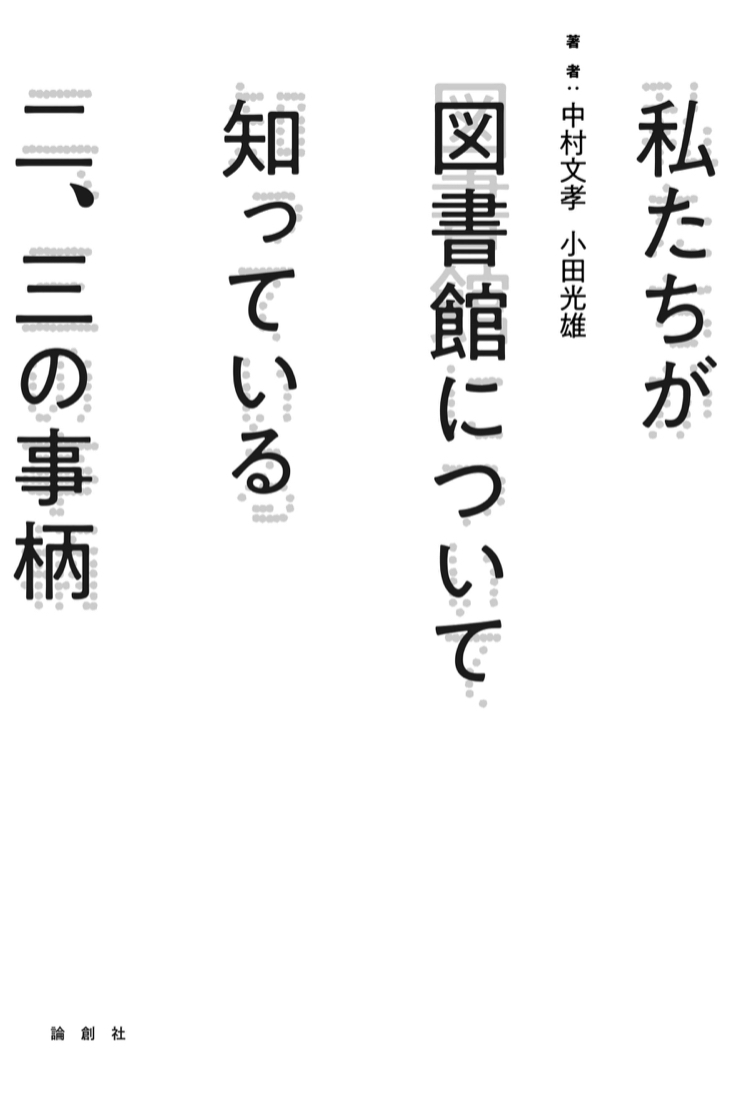 私たちが
著者:中村文孝 小田光雄
図書館について
知っている
二、三の事柄
論創社